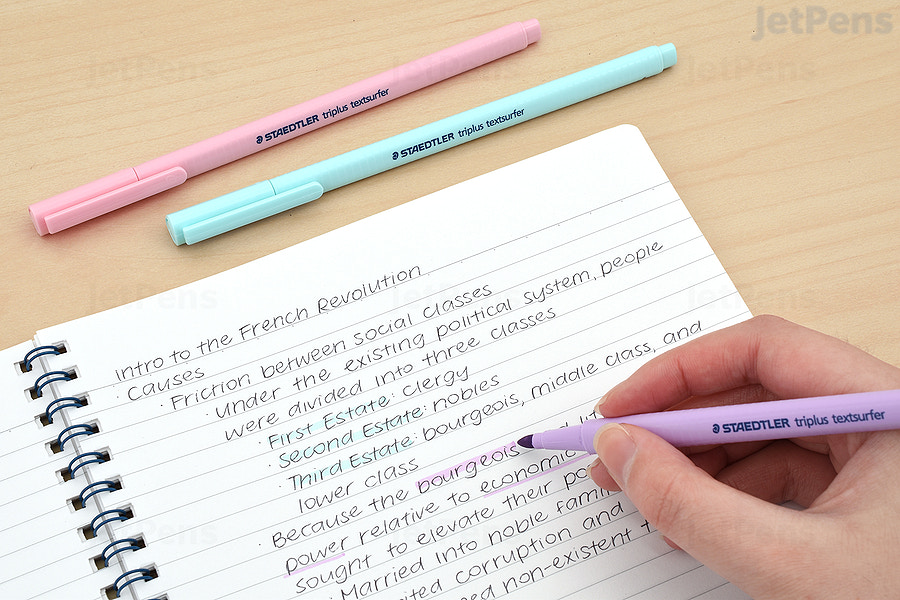 JetPens
STAEDTLER triplus textsurfer
STAEDTLER triplus textsurfer
Intro to the French Revolution
Causes
· Friction between social classes
· under the existing political system, people
were divided into three classes
· First Estate: clergy
· Second Estate: nobles
· Third Estate: bourgeois, middle class, and
lower class
· Because the bourgeois
power relative to economic
sought to elevate their
· Married into noble
corruption and
non-existent
STAEDTLER triplus textsurfer